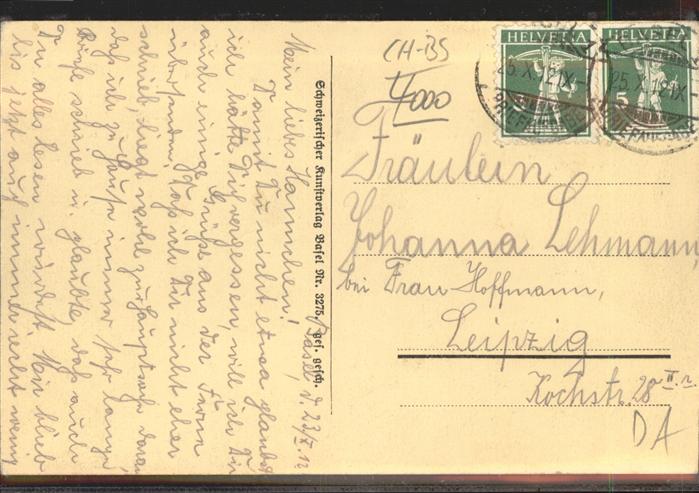 Basel d. 23/X. 12
Mein liebes Hannchen!
Damit Du nicht etwa glaubst
ich hätte Dich vergessen, will ich Dir
auch einige Grüße aus der Ferne
übersenden. Daß ich Dir nicht eher
schrieb, liegt wohl zur Hauptsache daran
daß ich zu Hause immer sehr lange
Briefe schrieb u. glaubte, das auch
Du alles lesen würdest. Mir blieb
bis jetzt auch immer recht wenig
Schweizerischer Kunstverlag Basel Nr. 3275. ges. gesch.
CH-BS
4000
HELVETIA
HELVETIA
25.X.12.IX-
25.X.12.IX
BRIEFTRÄGER
5
Fräulein
Johanna Lehmann,
bei Frau Hoffmann,
Leipzig
Kochstr. 28 II. r.
DA